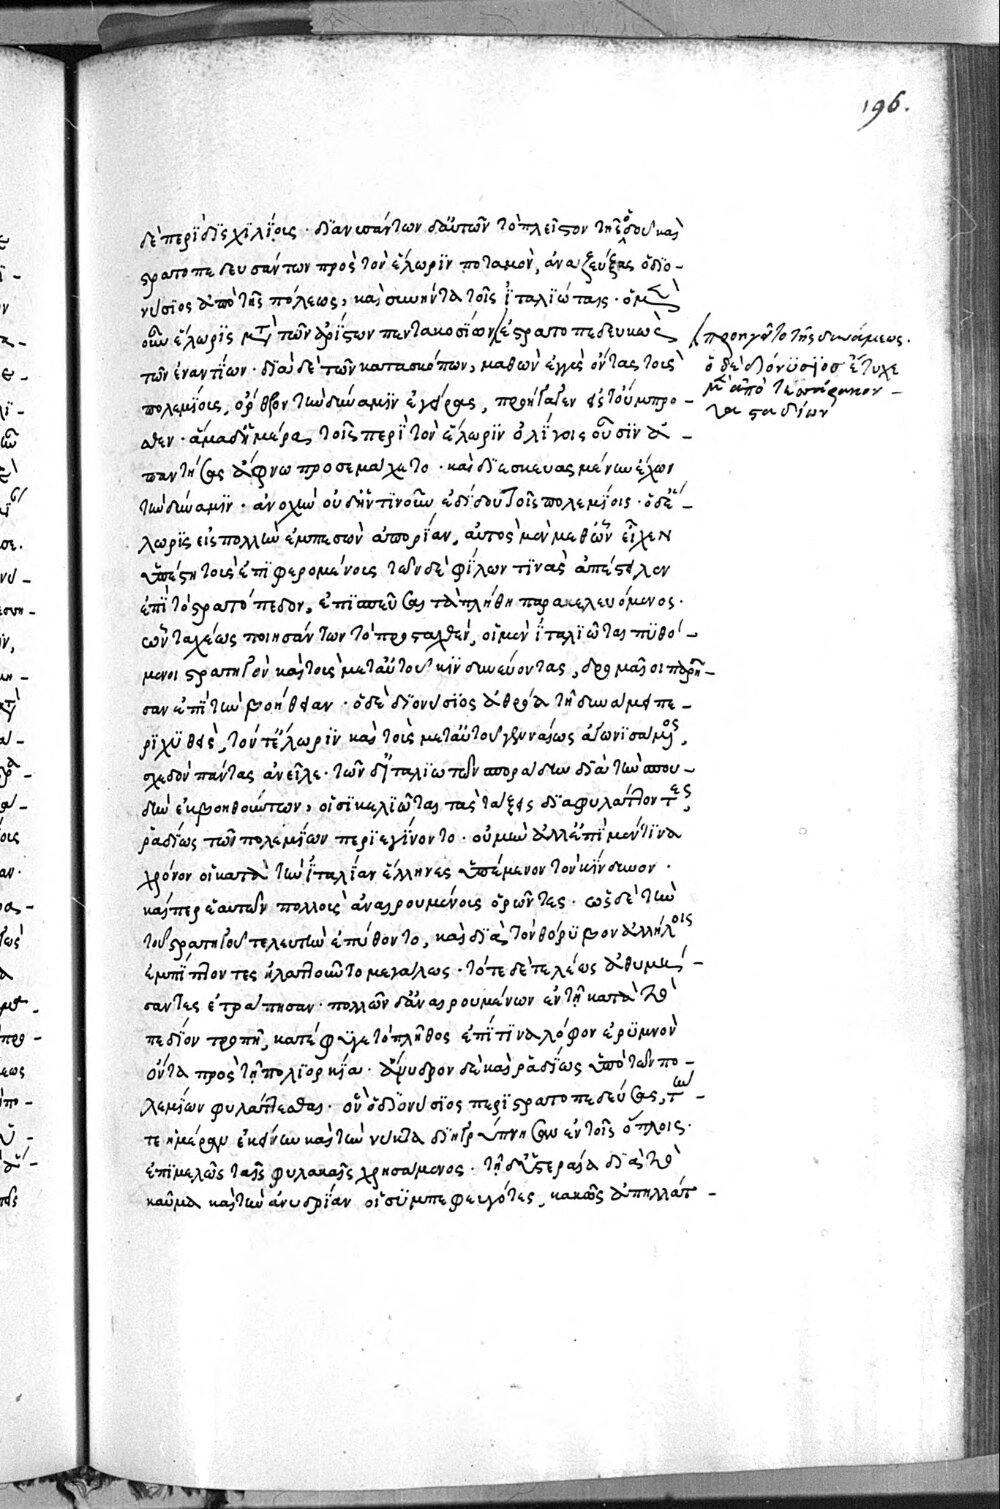 196.
δὲ περὶ δισχιλίοις · διανυσάντων δ' αὐτῶν τὸ πλεῖστον τῆς ὁδοῦ καὶ
στρατοπεδευσάντων πρὸς τὸν ἕλωριν ποταμὸν, ἀναζεύξας ὁ διο-
νύσιος ἀπὸ τῆς πόλεως, καὶ συνήντα τοῖς ἰταλιώταις · ὁ μὲν
οὖν ἕλωρις μετὰ τῶν ἀρίστων πεντακοσίων ἐστρατοπεδευκὼς
προηγεῖτο τῆς δυνάμεως.
ὁ δὲ διονύσιος ἔτυχε
μὲν ἀπὸ τετταράκον -
τα σταδίων
τῶν ἐναντίων · διὰ δὲ τῶν κατασκόπων, μαθὼν ἐγγὺς ὄντας τοὺς
πολεμίους, ὄρθρου τὴν δύναμιν ἐγείρας, προῆγεν εἰς τοὔμπρο -
σθεν · ἅμα δ' ἡμέρᾳ τοῖς περὶ τὸν ἕλωριν ὀλίγοις οὖσιν ἀ -
παντήσας ἄφνω προσεμάχετο · καὶ διεσκευασμένην ἔχων
τὴν δύναμιν · ἀνοχὴν οὐδ' ἥντιν' οὖν ἐδίδου τοῖς πολεμίοις · ὁ δ' ἕ -
λωρις εἰς πολλὴν ἐμπεσὼν ἀπορίαν, αὐτὸς μὲν μεθ' ὧν εἶχεν
ὑπέστη τοὺς ἐπιφερομένους τῶν δὲ φίλων τινὰς ἀπέστειλεν
ἐπὶ τὸ στρατόπεδον, ἐπισπεῦσαι τὰ πλήθη παρακελευόμενος ·
ὧν ταχέως ποιησάντων τὸ προσταχθὲν, οἱ μὲν ἰταλιῶται πυθό -
μενοι στρατηγὸν καὶ τοὺς μετ' αὐτοῦ κινδυνεύοντας, δρομαῖοι παρῆ -
σαν ἐπὶ τὴν βοήθειαν · ὁ δὲ διονύσιος ἀθρόᾳ τῇ δυνάμει πε -
ριχυθεὶς, τόν τε ἕλωριν καὶ τοὺς μετ' αὐτοῦ γενναίως ἀγωνισαμένους,
σχεδὸν πάντας ἀνεῖλε · τῶν δ' ἰταλιωτῶν σποράδην διὰ τὴν σπου -
δὴν ἐκβοηθούντων, οἱ σικελιῶται τὰς τάξεις διαφυλάττοντες,
ῥᾳδίως τῶν πολεμίων περιεγίνοντο · οὐ μὴν ἀλλ' ἐπὶ μέν τινα
χρόνον οἱ κατὰ τὴν ἰταλίαν ἕλληνες ὑπέμενον τὸν κίνδυνον ·
καίπερ ἑαυτῶν πολλοὺς ἀναιρουμένους ὁρῶντες · ὡς δὲ τὴν
τοῦ στρατηγοῦ τελευτὴν ἐπύθοντο, καὶ διὰ τὸν θόρυβον ἀλλήλοις
ἐμπίπτοντες ἠλαττοῦντο μεγάλως · τότε δὲ τελέως ἀθυμή -
σαντες ἐτράπησαν · πολλῶν δ' ἀναιρουμένων ἐν τῇ κατὰ τὸ
πεδίον τροπῇ, κατέφυγε τὸ πλῆθος ἐπί τινα λόφον ἐρυμνὸν
ὄντα πρὸς τῇ πολιορκίᾳ · ἄνυδρον δὲ καὶ ῥᾳδίως ὑπὸ τῶν πο -
λεμίων φυλάττεσθαι · ὃν ὁ διονύσιος περιστρατοπεδεύσας, τὴν -
τε ἡμέραν ἐκείνην καὶ τὴν νύκτα διηγρύπνησεν ἐν τοῖς ὅπλοις ·
ἐπιμελῶς ταῖς φυλακαῖς χρησάμενος · τῇ δ' ὑστεραίᾳ διὰ τὸ
καῦμα καὶ τὴν ἀνυδρίαν οἱ συμπεφευγότες, κακῶς ἀπήλλατ -